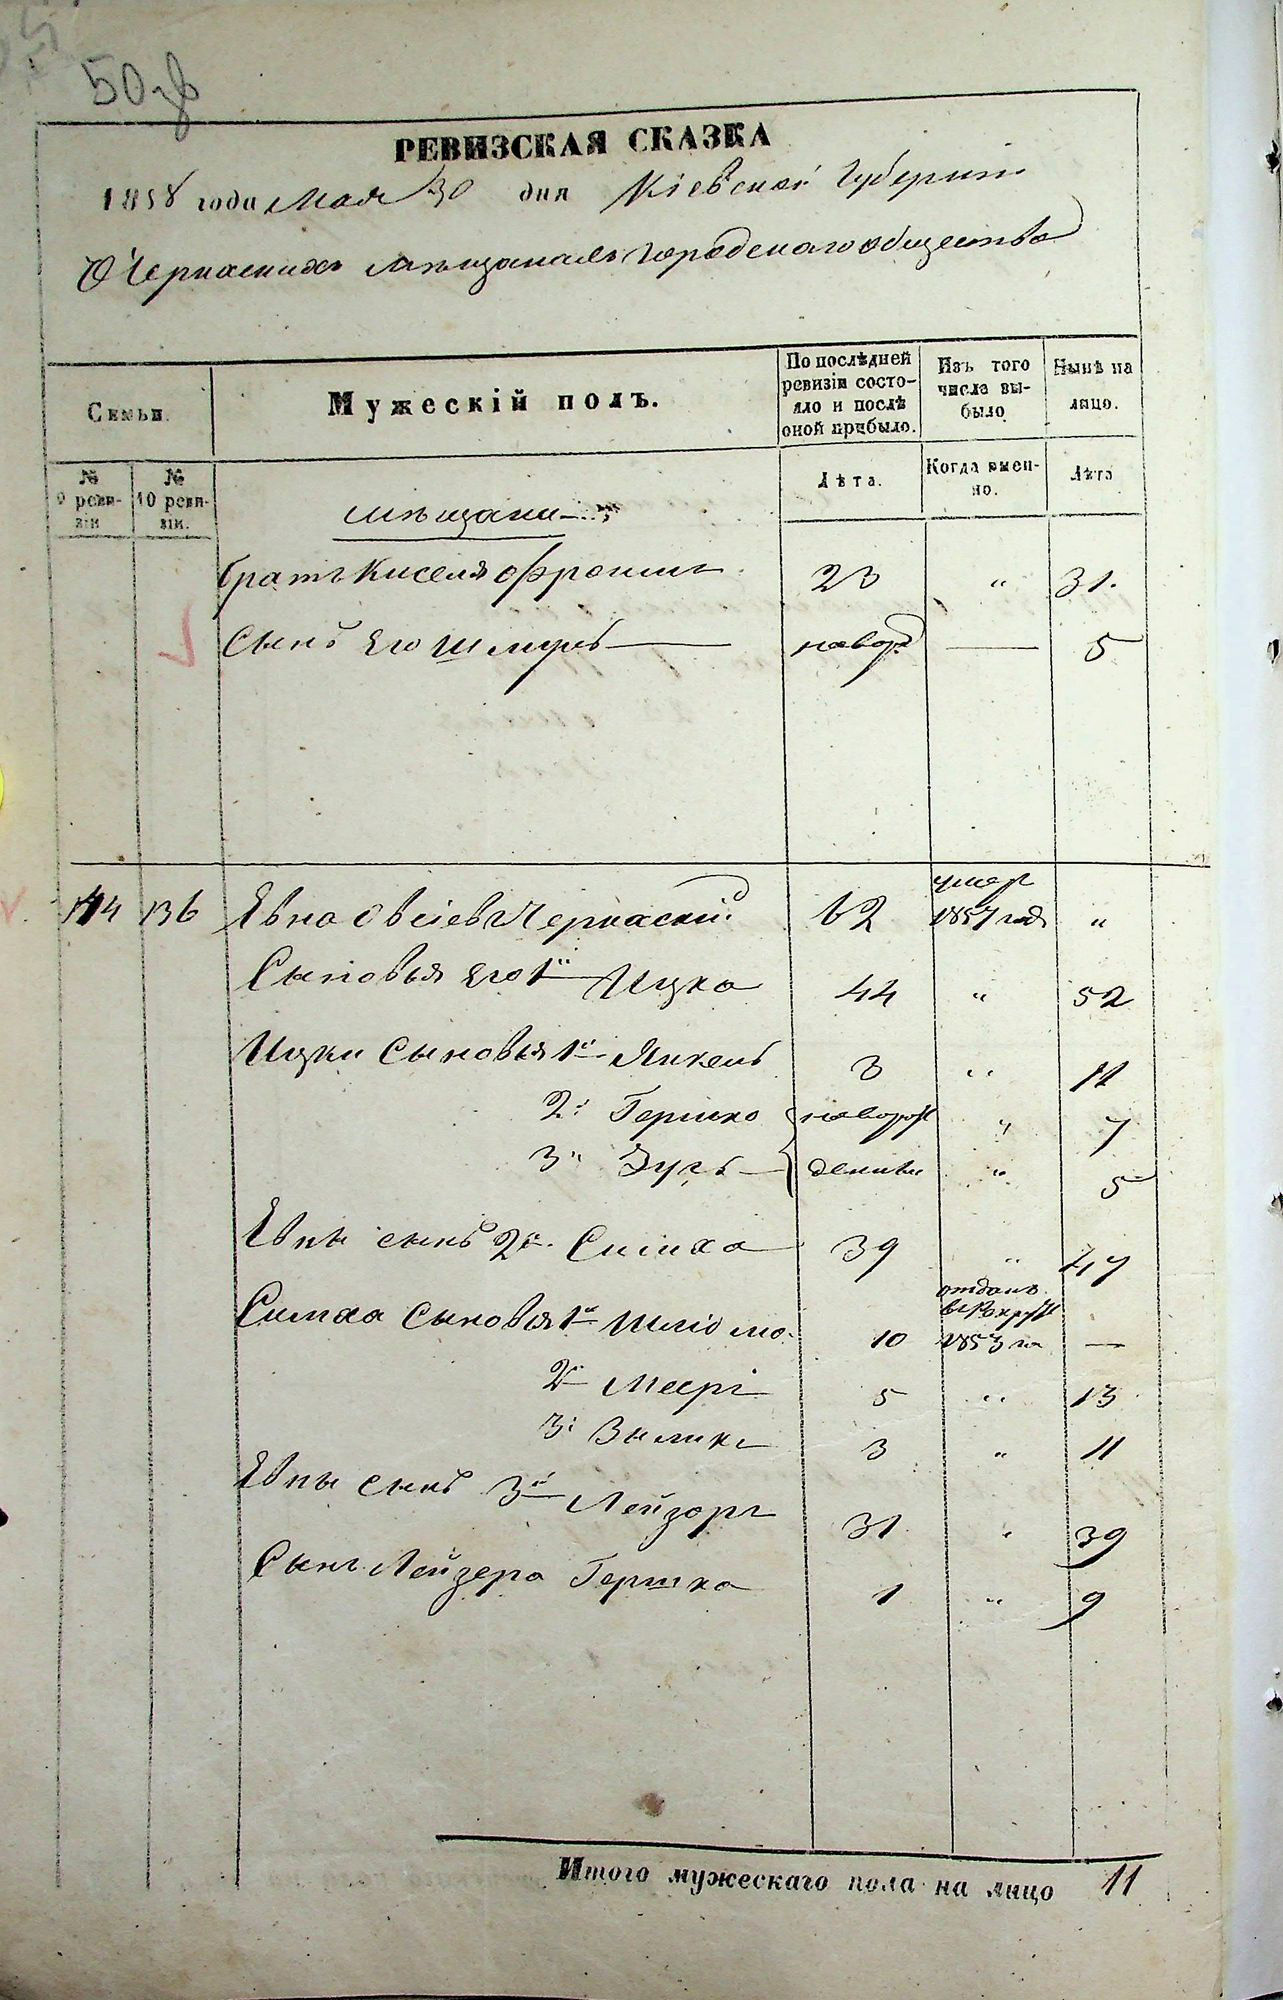 50
РЕВИЗСКАЯ СКАЗКА
1858 года мая 30 дня Кіевской Губерніи
О Черкаскихъ мѣщанахъ городскаго общества
Семьи.
Мужескій полъ.
По послѣдней ревизіи состояло и послѣ оной прибыло.
Изъ того числа выбыло
Нынѣ на лицо.
№ 9 ревизіи
№ 10 ревизіи.
Лѣта.
Когда именно.
Лѣта
мѣщане
братъ Киселя Фроимъ 23 " 31.
Сынъ его Шмуль — новор — 5
144 136 Евна Овсіевъ Черкаскій 62 умер 1857 года "
Сыновья его 1й Ицко 44 " 52
Ицки Сыновья 1й Янкель 3 " 11
2й Гершко новорож " 7
3й Зусь денные " 5
Евны сынъ 2й Симха 39 " 47
Симха Сыновья 1й Шліома 10 отданъ в рекруты 1853 го —
2й Мееръ 5 " 13
3й Зельикъ 3 " 11
Евны сынъ 3й Лейзоръ 31 " 39
Сынъ Лейзера Гершко 1 " 9
Итого мужескаго пола на лицо 11